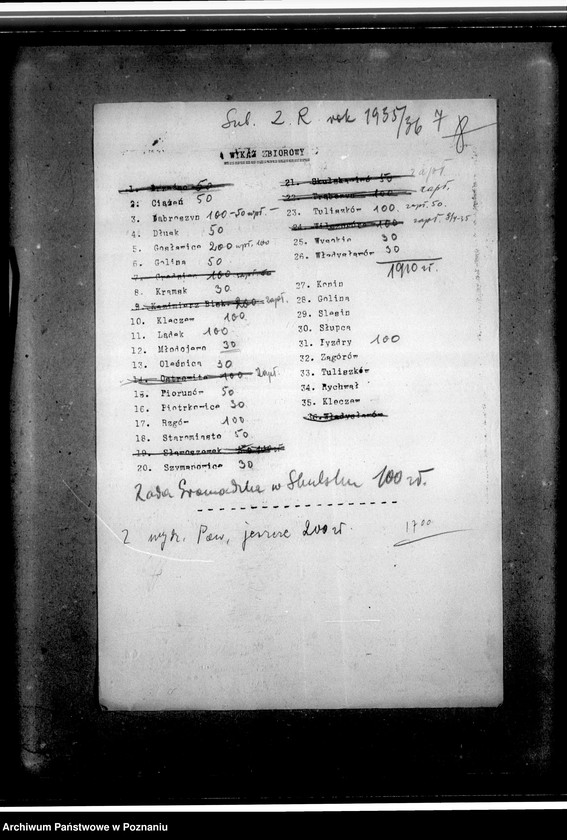 Sub. Z. R. rok 1935/36 7
8
WYKAZ ZBIOROWY
1. 50
2. Ciążeń 50
3. Dąbroszyn 100 - 50 wpł. -
4. Dłusk 50
5. Gosławice 200 wpł. 100
6. Golina 50
7. Grodziec 100 zapł.
8. Kramsk 30
9. Kazimierz Bisk. 200 zapł.
10. Kleczew 100
11. Lądek 100
12. Młodojewo 30
13. Oleśnica 30
14. Ostrowite 100 zapł.
15. Piorunów 50
16. Piotrkowice 30
17. Rzgów 100
18. Staromiasto 50
19. Sławoszewek
20. Szymanowice 30
21. Skulska-wieś 50 zapł.
22. Trąbczyn 100 zapł.
23. Tuliszków 100 zapł. 50.
24. Wilczogóra 100 zapł.
25. Wysokie 30
26. Władysławów 30
1910 zł.
27. Konin
28. Golina
29. Ślesin
30. Słupca
31. Pyzdry 100
32. Zagórów
33. Tuliszków
34. Rychwał
35. Kleczew
36. Władysławów
Rada Gromadzka w Skulsku 100 zł.
Z wydz. Pow. jeszcze 200 zł.
1700
Archiwum Państwowe w Poznaniu